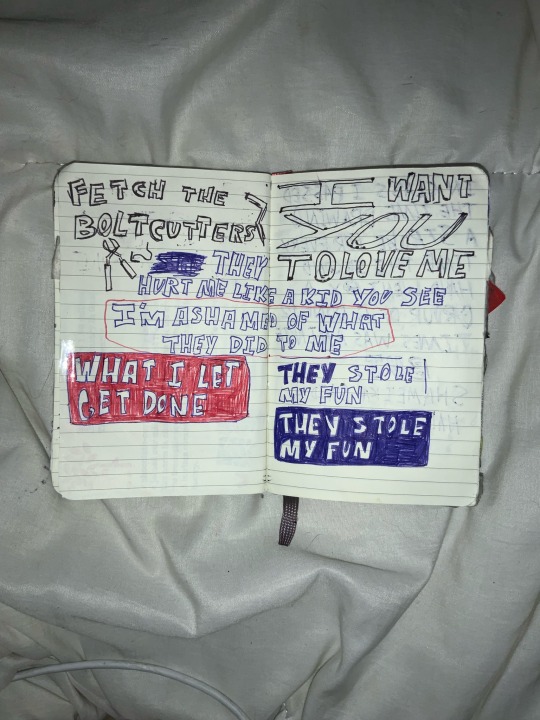 FETCH THE
BOLTCUTTERS
I WANT
YOU
TO LOVE ME
THEY
HURT ME LIKE A KID YOU SEE
I'M ASHAMED OF WHAT
THEY DID TO ME
WHAT I LET
GET DONE
THEY STOLE
MY FUN
THEY STOLE
MY FUN